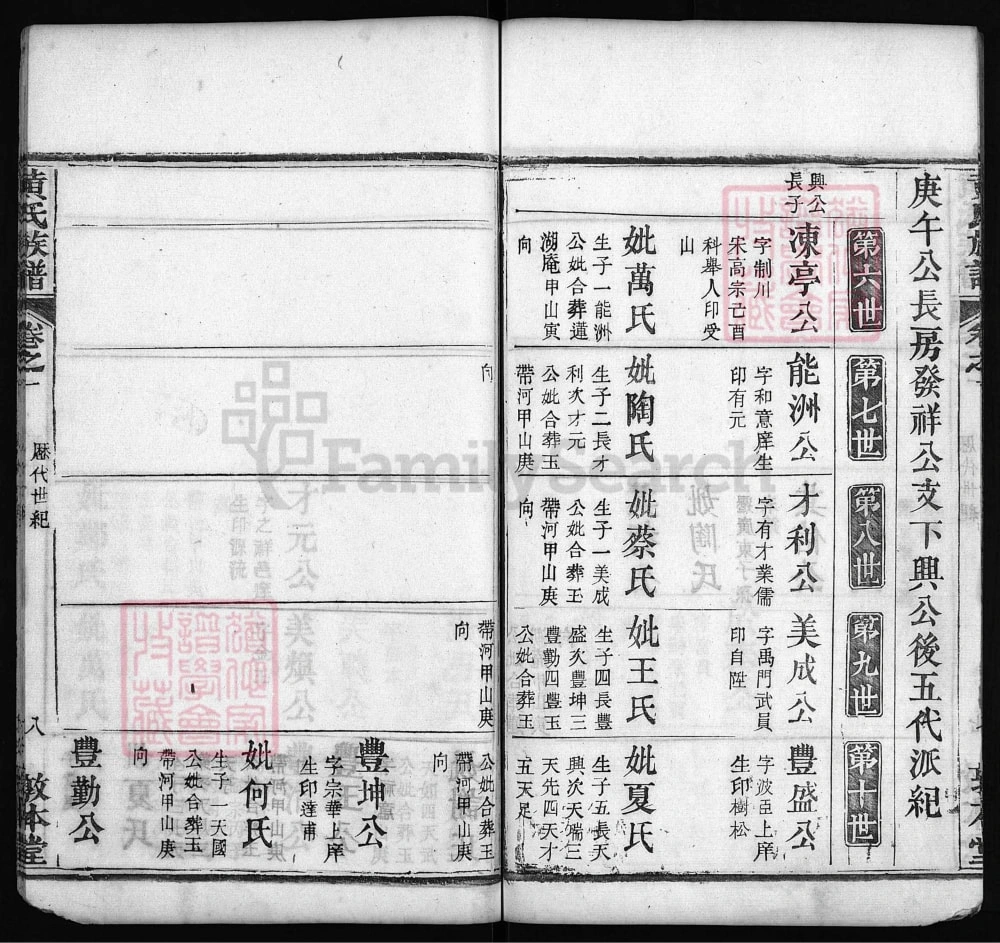 庚午公長房發祥公支下興公後五代派紀
第六世
興公
長子
凍亭公
字制川
宋高宗己酉
科舉人印受
山
妣萬氏
生子一能洲
公妣合葬蓮
湖庵甲山寅
向
第七世
能洲公
字和意庠生
印有元
妣陶氏
生子二長才
利次才元
公妣合葬玉
帶河甲山庚
向
第八世
才利公
字有才業儒
妣蔡氏
生子一美成
公妣合葬玉
帶河甲山庚
向
第九世
美成公
字禹門武員
印自陞
妣王氏
生子四長豐
盛次豐坤三
豐勤四豐玉
公妣合葬玉
帶河甲山庚
向
第十世
豐盛公
字波臣上庠
生印樹松
妣夏氏
生子五長天
興次天瑞三
天先四天才
五天足
公妣合葬玉
帶河甲山庚
向
豐坤公
字宗華上庠
生印達甫
妣何氏
生子一天國
公妣合葬玉
帶河甲山庚
向
豐勤公
黃氏族譜
卷之一
歷代世紀
八
敦本堂
FamilySearch